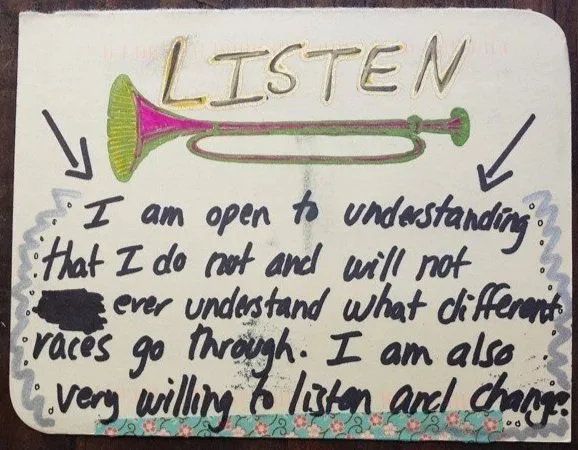 LISTEN
I am open to understanding
that I do not and will not
ever understand what different
races go through. I am also
very willing to listen and change.